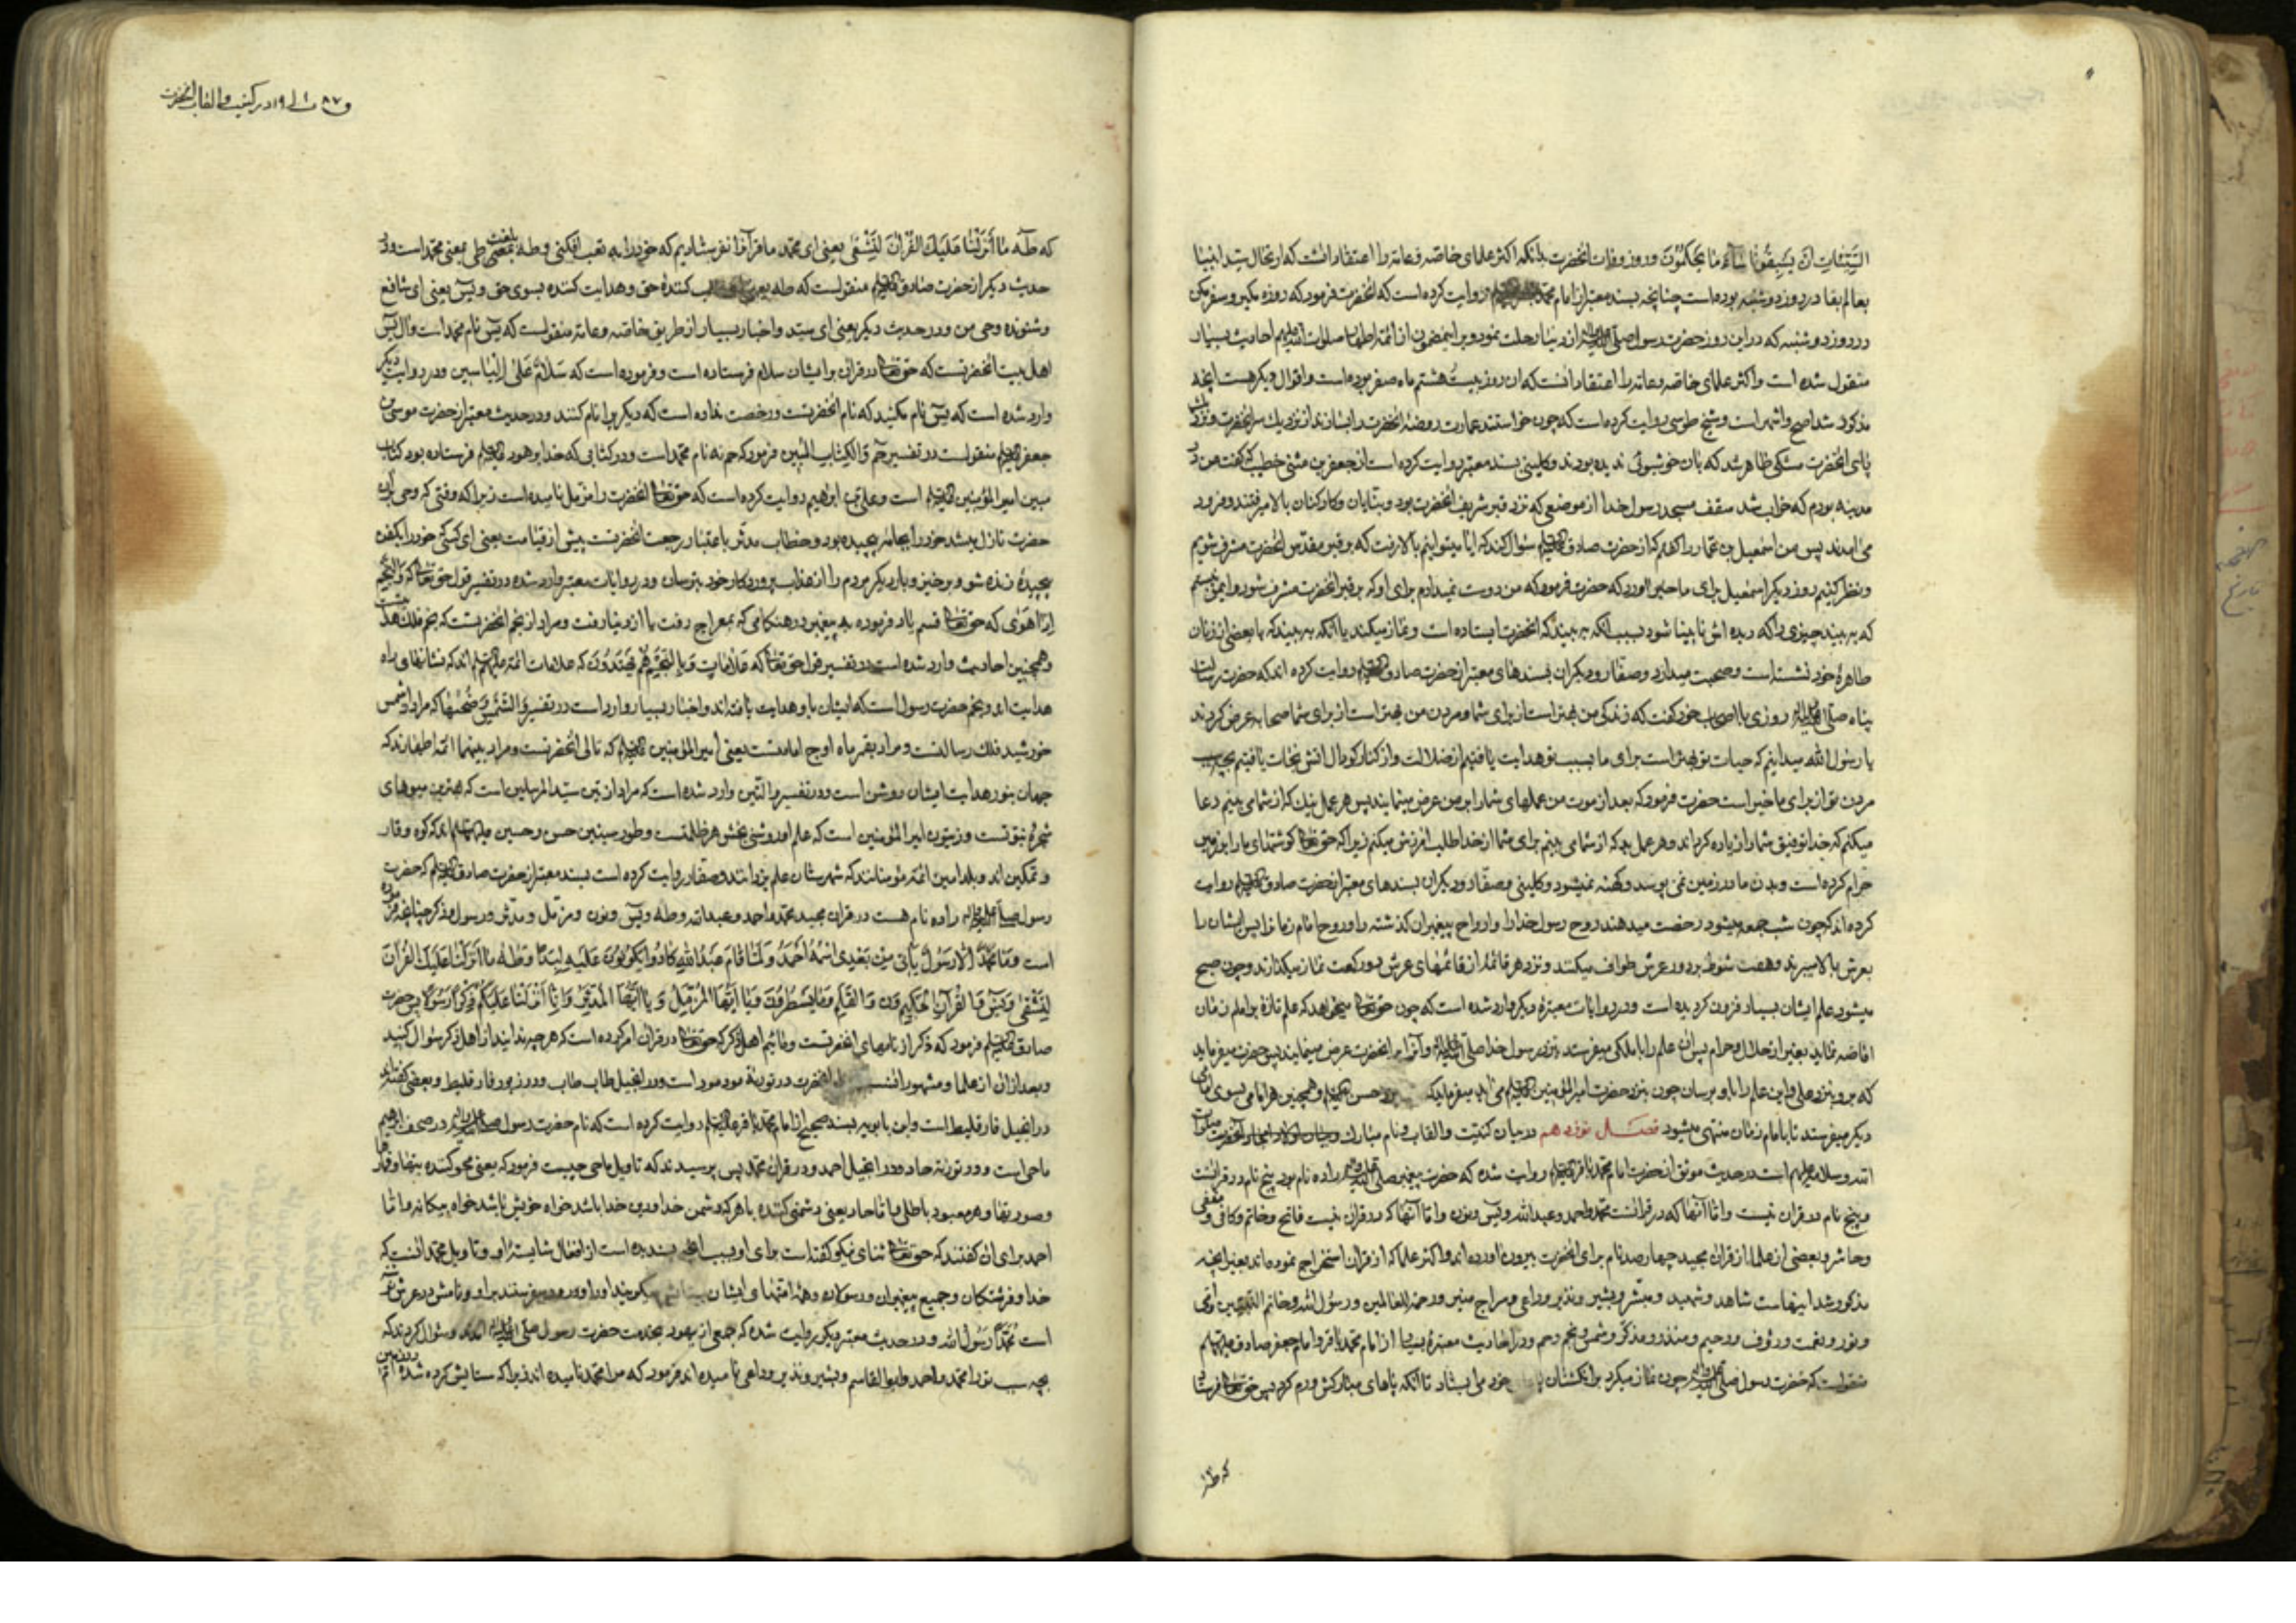 السیئات ان یسبقونا ساء ما یحکمون و روز وفات آنحضرت بدانکه اکثر علمای خاصه و عامه را اعتقاد آنست که ارتحال سید انبیا
بعالم بقا در روز دوشنبه بوده است چنانچه بسند معتبر از امام محمد روایت کرده است که آنحضرت فرمود که روزه مگیر و سفر مکن
در روز دوشنبه که در این روز حضرت رسول صلی الله علیه و آله از دنیا رحلت نمود و بر این مضمون از ائمه اطهار صلوات الله علیهم احادیث بسیار
منقول شده است و اکثر علمای خاصه و عامه را اعتقاد آنست که آن روز بیست هشتم ماه صفر بوده است و اقوال دیگر هست آنچه
مذکور شد اصح و اشهر است و شیخ طوسی روایت کرده است که چون خواستند عمارت روضه آنحضرت را بسازند از نزدیک سر آنحضرت و نزد
پای آنحضرت مشکی ظاهر شد که بآن خوشبوئی ندیده بودند و کلینی بسند معتبر روایت کرده است از جعفر بن مثنی خطیب که گفت من در
مدینه بودم که خراب شد سقف مسجد رسول خدا از موضعی که نزد قبر شریف آنحضرت بود و بنایان و کارکنان بالا میرفتند و فرود
می‌آمدند پس من اسمعیل بن عمار را گفتم که از حضرت صادق علیه السلام سؤال کند که آیا میتوانیم بالا رفت که بر قبر مقدس آنحضرت مشرف شویم
و نظر کنیم روز دیگر اسمعیل برای ما خبر آورد که حضرت فرمود که من دوست نمیدارم برای او که بر قبر آنحضرت مشرف شود و ایمن نیستم
که ببیند چیزی را که دیده‌اش نابینا شود بسبب آنکه ببیند که آنحضرت ایستاده است و نماز میکند یا آنکه ببیند که با بعضی از زنان
طاهرهٔ خود نشسته است و صحبت میدارد و صفار و دیگران بسندهای معتبر از حضرت صادق علیه السلام روایت کرده‌اند که حضرت رسالت
پناه صلی الله علیه و آله روزی با اصحاب خود گفت که زندگی من بهتر است از برای شما و مردن من بهتر است از برای شما صحابه عرض کردند
یا رسول الله میدانیم که حیات تو بهتر است برای ما بسبب تو هدایت یافتیم از ضلالت و از کنار گودال آتش نجات یافتیم بچه سبب
مردن تو از برای ما خیر است حضرت فرمود که بعد از موت من عملهای شما را بر من عرض مینمایند پس هر عمل نیک که از شما می بینم دعا
میکنم که خدا توفیق شما را زیاده گرداند و هر عمل بد که از شما می بینم برای شما از خدا طلب آمرزش میکنم زیرا که حق تعالی گوشتهای ما را بر زمین
حرام کرده است و بدن ما در زمین نمی پوسد و کهنه نمیشود و کلینی و صفار و دیگران بسندهای معتبر از حضرت صادق علیه السلام روایت
کرده‌اند که چون شب جمعه میشود رخصت میدهند روح رسول خدا را و ارواح پیغمبران گذشته را و روح امام زمان را پس ایشان را
بعرش بالا میبرند و هفت شوط بر دور عرش طواف میکنند و نزد هر قائمه از قائمهای عرش دو رکعت نماز میگذارند و چون صبح
میشود علم ایشان بسیار فزون گردیده است و در روایات معتبره دیگر وارد شده است که چون حق تعالی میخواهد که علم تازهٔ بر امام زمان
افاضه نماید بغیر از حلال و حرام پس آن علم را با ملکی میفرستد بنزد رسول خدا صلی الله علیه و آله و آنرا بر آنحضرت عرض مینماید پس حضرت میفرماید
که برو بنزد علی و این علم را باو برسان چون بنزد حضرت امیر المؤمنین علیه السلام می‌آید میفرماید که برو بنزد حسن علیه السلام و همچنین هر امامی بسوی امامی
دیگر میفرستد تا بامام زمان منتهی میشود فصل نوزدهم در بیان کنیت و القاب و نام مبارک آنحضرت صلوات
الله و سلامه علیهم است در حدیث موثق از حضرت امام محمد باقر علیه السلام روایت شده که حضرت پیغمبر صلی الله علیه و آله را ده نام بود پنج نام در قرآنست
و پنج نام در قرآن نیست و اما آنها که در قرآنست محمد و احمد و عبدالله و یس و نون و اما آنها که در قرآن نیست فاتح و خاتم و کافی و مقفی
و حاشر و بعضی از علما از قرآن مجید چهارصد نام برای آنحضرت بیرون آورده‌اند و اکثر علما که از قرآن استخراج نموده‌اند بغیر آنچه
مذکور شد اینهاست شاهد و شهید و مبشر و بشیر و نذیر و داعی و سراج منیر و رحمة للعالمین و رسول الله و خاتم النبیین و امی
و نور و نعمت و رؤف و رحیم و منذر و مذکر و شمس و نجم و حم و در احادیث معتبرهٔ بسیار از امام محمد باقر و امام جعفر صادق علیهما السلام
منقولست که حضرت رسول صلی الله علیه و آله چون نماز میکرد بر انگشتان پا خود می ایستاد تا آنکه پاهای مبارکش ورم کرد پس حق تعالی فرستاد
که طه
در کنیت و القاب آنحضرت
که طه ما انزلنا علیک القرآن لتشقی یعنی ای محمد ما قرآن را نفرستادیم که خود را به تعب افکنی و طه بلغت طی بمعنی محمد است و در
حدیث دیگر از حضرت صادق علیه السلام منقولست که طه یعنی ای طالب کنندهٔ حق و هدایت کننده بسوی حق و یس یعنی ای سامع
و شنونده وحی من و در حدیث دیگر یعنی ای سید و اخبار بسیار از طریق خاصه و عامه منقولست که یس نام محمد است و آل یس
اهل بیت آنحضرتست که حق تعالی در قرآن بر ایشان سلام فرستاده است و فرموده است که سلام علی الیاسین و در روایت دیگر
وارد شده است که یس نام مکنید که نام آنحضرتست و رخصت نداده است که دیگریرا نام کنند و در حدیث معتبر از حضرت موسی بن
جعفر علیه السلام منقولست در تفسیر حم و الکتاب المبین فرمود که حم نام محمد است و در کتابی که خدا بر هود علیه السلام فرستاده بود کتاب
مبین امیر المؤمنین علیه السلام است و علی بن ابراهیم روایت کرده است که حق تعالی آنحضرت را مزمل نامیده است زیرا که وقتی که وحی بر آن
حضرت نازل میشد خود را بجامه پیچیده بود و خطاب مدثر باعتبار رجعت آنحضرتست پیش از قیامت یعنی ای کسی که خود را بکفن
پیچیدهٔ زنده شو و برخیز و بار دیگر مردم را از عذاب پروردگار خود بترسان و در روایات معتبر وارد شده در تفسیر قول حق تعالی که و النجم
اذا هوی که حق تعالی قسم یاد فرموده به پیغمبر در هنگامی که بمعراج رفت یا از دنیا رفت و مراد از نجم آنحضرتست که نجم فلک هدایتست
و همچنین احادیث وارد شده است در تفسیر قول حق تعالی که علامات و بالنجم هم یهتدون که علامات ائمه علیهم السلام اند که نشانهای راه
هدایت اند و نجم حضرت رسول است که ایشان باو هدایت یافته‌اند و اخبار بسیار وارد است در تفسیر و الشمس و ضحیها که مراد از شمس
خورشید فلک رسالتست و مراد بقمر ماه اوج امامتست یعنی امیر المؤمنین علیه السلام که تالی آنحضرتست و مراد بنهار ائمه اطهارند که
جهان بنور هدایت ایشان روشن است و در تفسیر و التین وارد شده است که مراد از تین سید المرسلین است که بهترین میوهای
شجرهٔ نبوتست و زیتون امیر المؤمنین است که علم او روشنی بخش هر ظلمتست و طور سینین حسن و حسین علیهما السلام اند که کوه وقار
و تمکین اند و بلد امین ائمه مؤمنانند که شهرستان علم یزدانند و صفار روایت کرده است بسند معتبر از حضرت صادق علیه السلام که حضرت
رسول صلی الله علیه و آله را ده نام هست در قرآن مجید محمد و احمد و عبدالله و طه و یس و نون و مزمل و مدثر و رسول و ذکر چنانچه فرموده
است و ما محمد الا رسول یأتی من بعدی اسمه احمد و لما قام عبدالله کادوا یکونون علیه لبدا و طه ما انزلنا علیک القرآن
لتشقی و یس و القرآن الحکیم ن و القلم و ما یسطرون و یا ایها المزمل و یا ایها المدثر و انا انزلنا علیکم ذکرا رسولا پس حضرت
صادق علیه السلام فرمود که ذکر از نامهای آنحضرتست و مائیم اهل ذکر که حق تعالی در قرآن امر کرده است که هر چه ندانید از اهل ذکر سؤال کنید
و بعد از آن از علما و مشهور آنست آنحضرت در توریة مود مود است و در انجیل طاب طاب و در زبور فارقلیط و بعضی گفته‌اند
در انجیل فارقلیط است و ابن بابویه بسند صحیح از امام محمد باقر علیه السلام روایت کرده است که نام حضرت رسول صلی الله علیه و آله در صحف ابراهیم
ماحی است و در توریة حاد و در انجیل احمد و در قرآن محمد پس پرسیدند که تأویل ماحی چیست فرمود که یعنی محو کننده بتها و قمار
و صورتها و هر معبود باطلی و اما حاد یعنی دشمنی کننده با هر که دشمن خدا و دین خدا باشد خواه خویش باشد خواه بیگانه و اما
احمد برای آن گفتند که حق تعالی ثنای نیکو گفته است برای او بسبب آنچه پسندیده است از افعال شایستهٔ او و تأویل محمد آنست که
خدا و فرشتگان و جمیع پیغمبران و رسولان و همه امتهای ایشان ستایش میگویند او را و درود میفرستند بر او و نامش در عرش نوشته
است محمد رسول الله و در حدیث معتبر دیگر روایت شده که جمعی از یهود بخدمت حضرت رسول صلی الله علیه و آله آمدند و سؤال کردند که
بچه سبب ترا محمد و احمد و ابو القاسم و بشیر و نذیر و داعی نامیده‌اند فرمود که مرا محمد نامیده‌اند زیرا که ستایش کرده شده‌ام در زمین